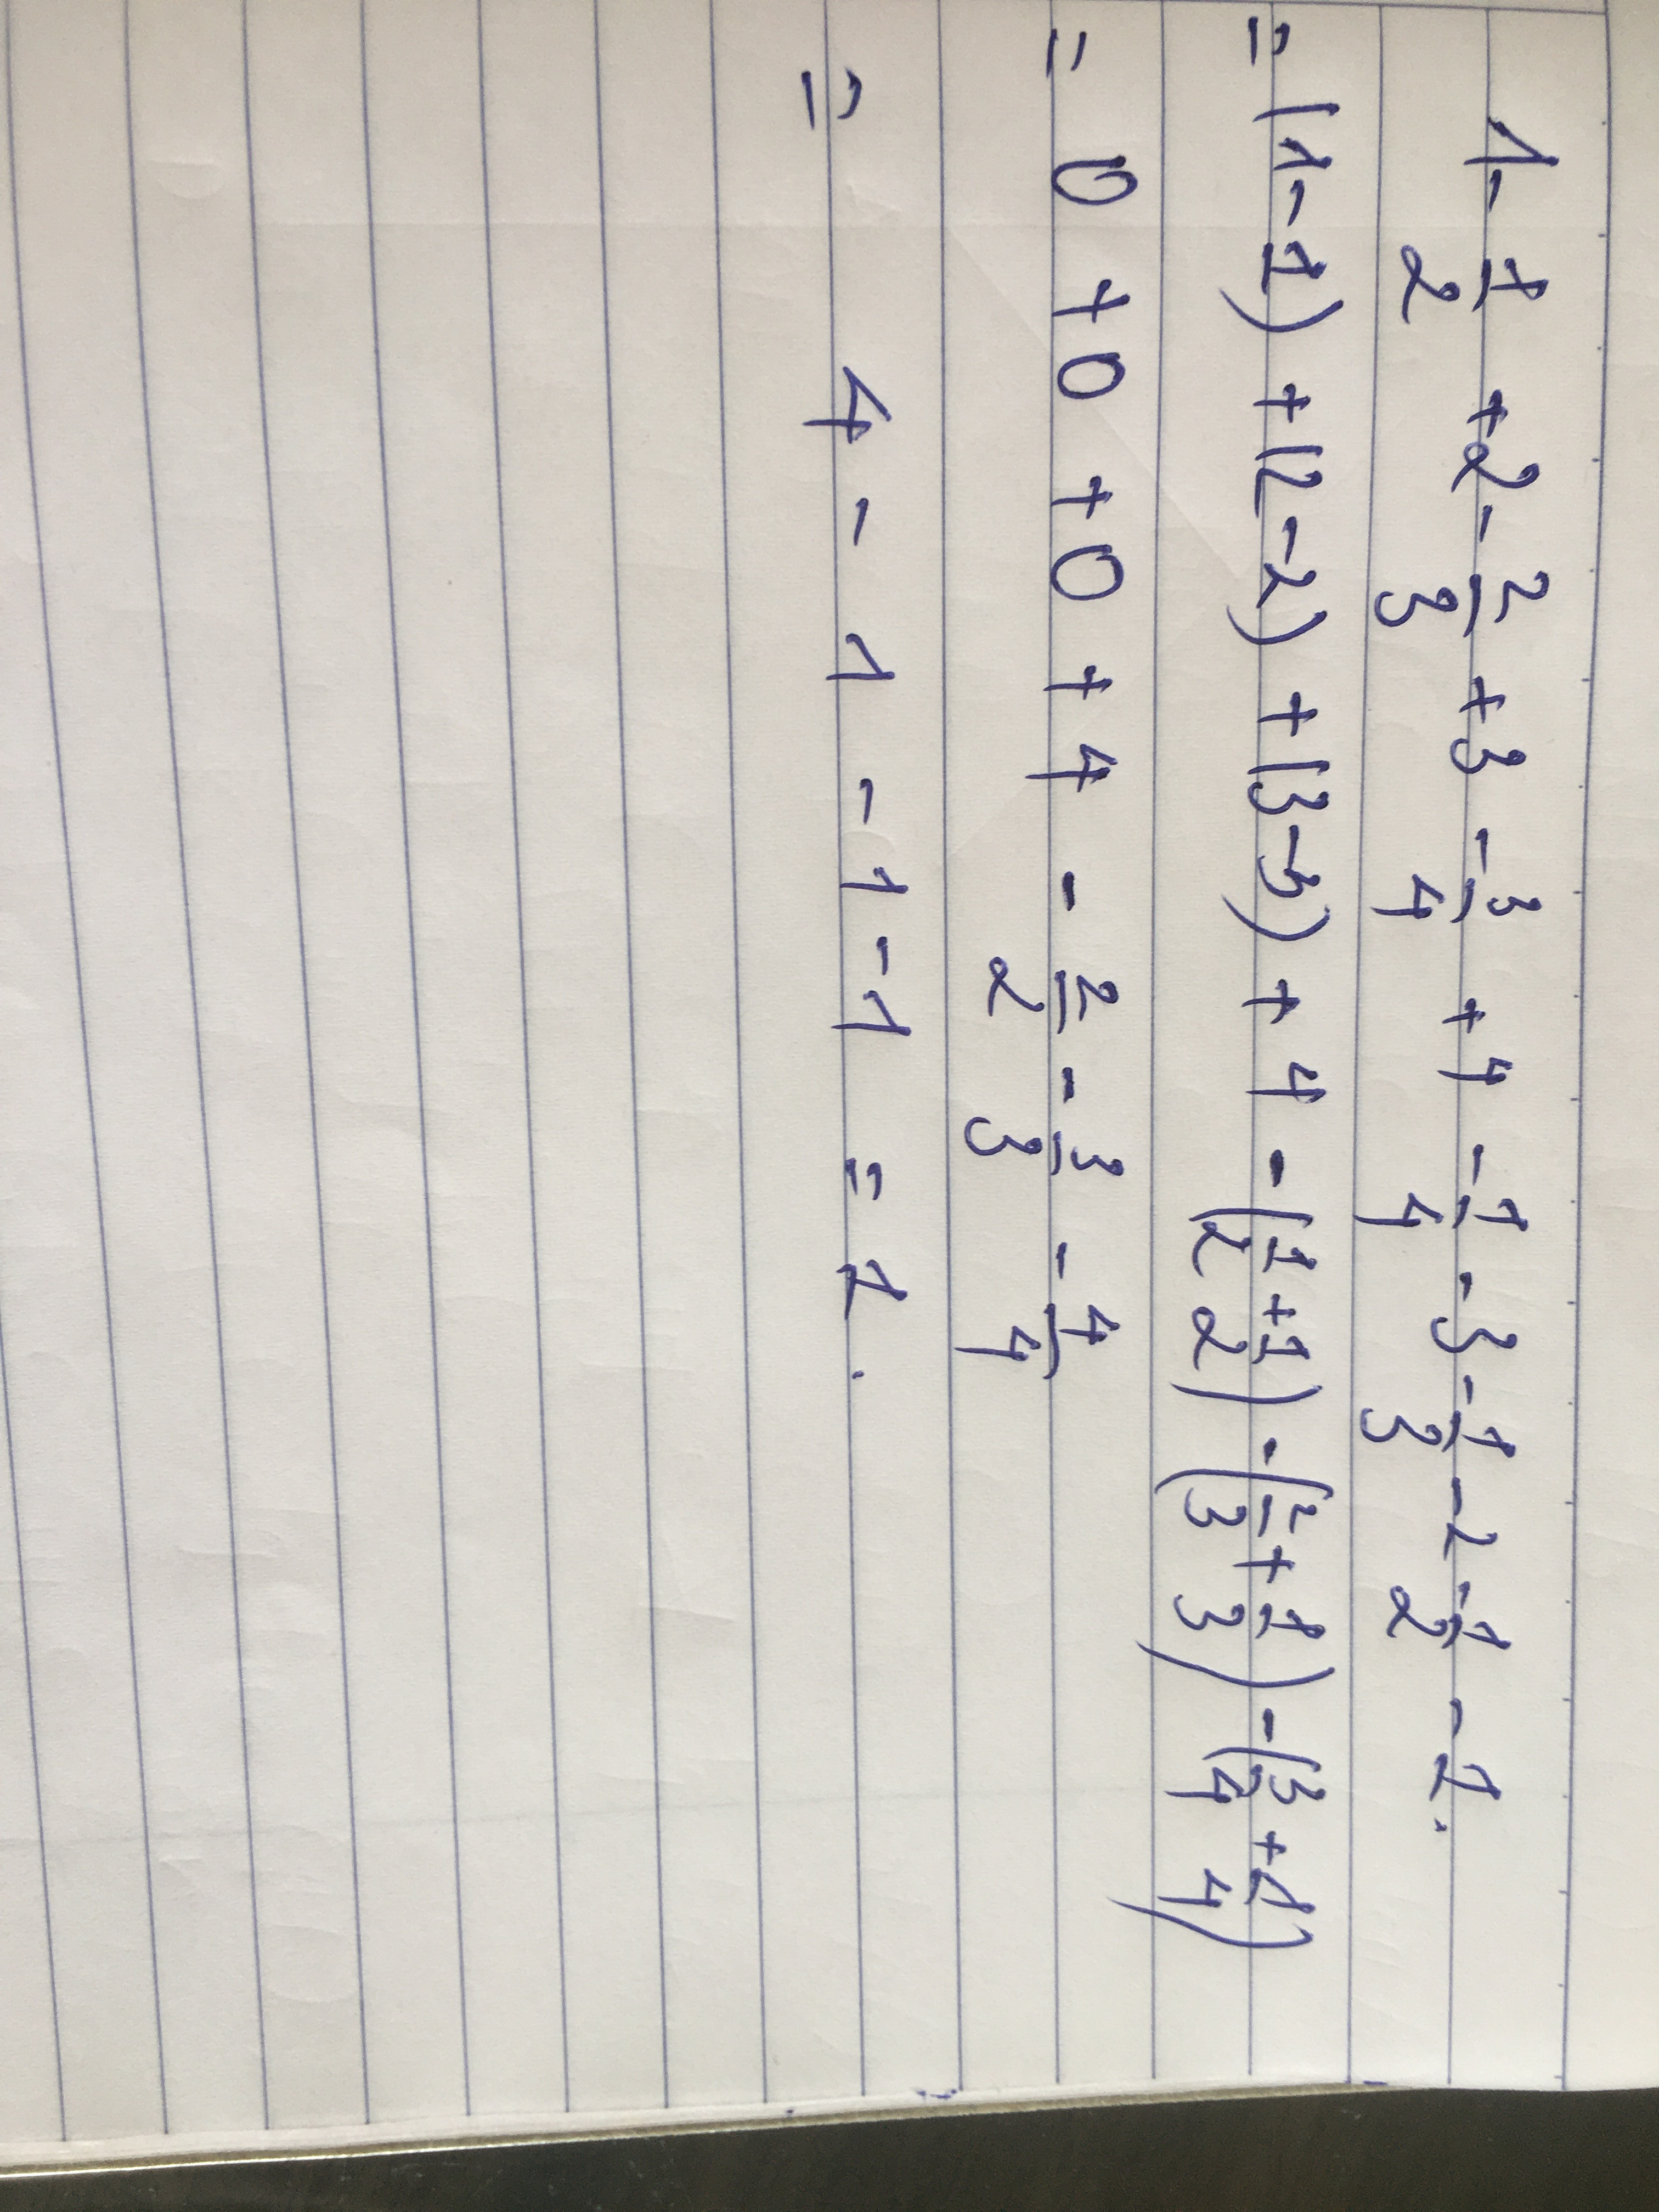 1 - 1/2 + 2 - 2/3 + 3 - 3/4 + 4 - 1/4 - 3 - 1/3 - 2 - 1/2 - 1.
= (1 - 1) + (2 - 2) + (3 - 3) + 4 - (1/2 + 1/2) - (2/3 + 1/3) - (3/4 + 1/4)
= 0 + 0 + 0 + 4 - 2/2 - 3/3 - 4/4
= 4 - 1 - 1 - 1 = 1.